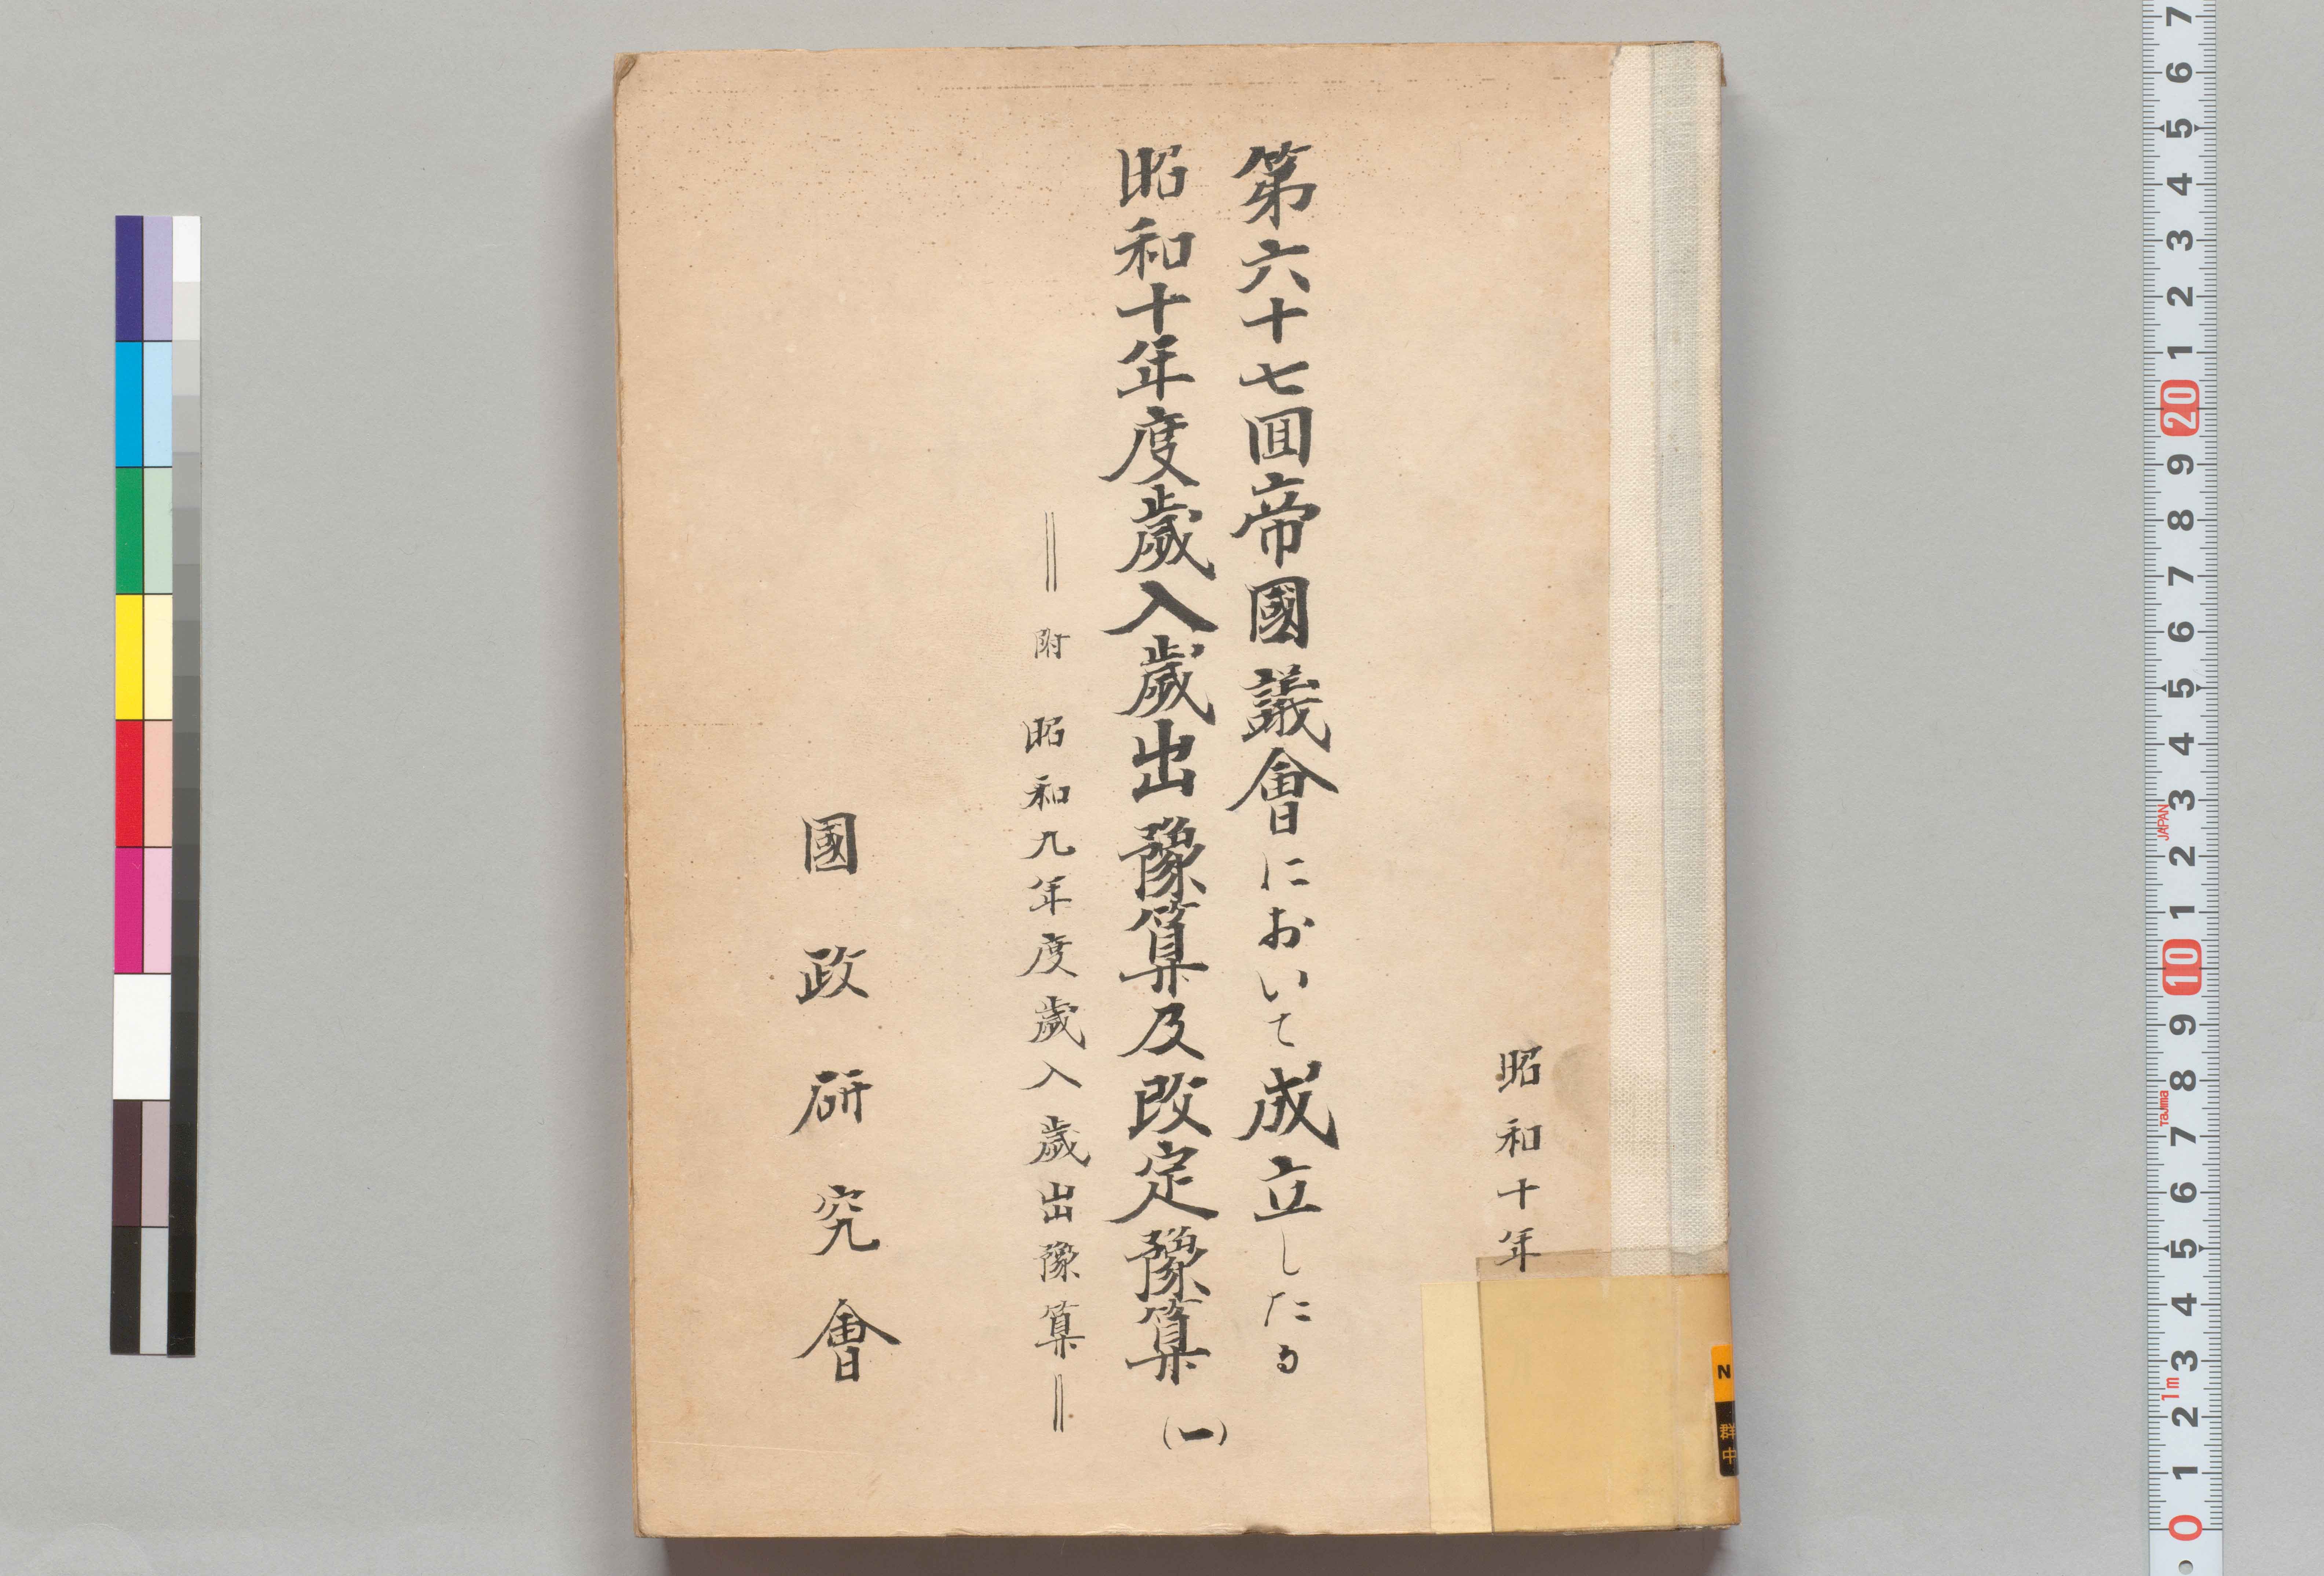 昭和十年
第六十七囬帝國議會において成立したる
昭和十年度歳入歳出豫算及改定豫算(一)
‖附 昭和九年度歳入歳出豫算‖
國政研究會
N
群
中
7
6
5
4
3
2
1
20
9
8
7
6
5
4
3
JAPAN
2
1
10
9
8
Tajima
7
6
5
4
3
1m
2
1
0